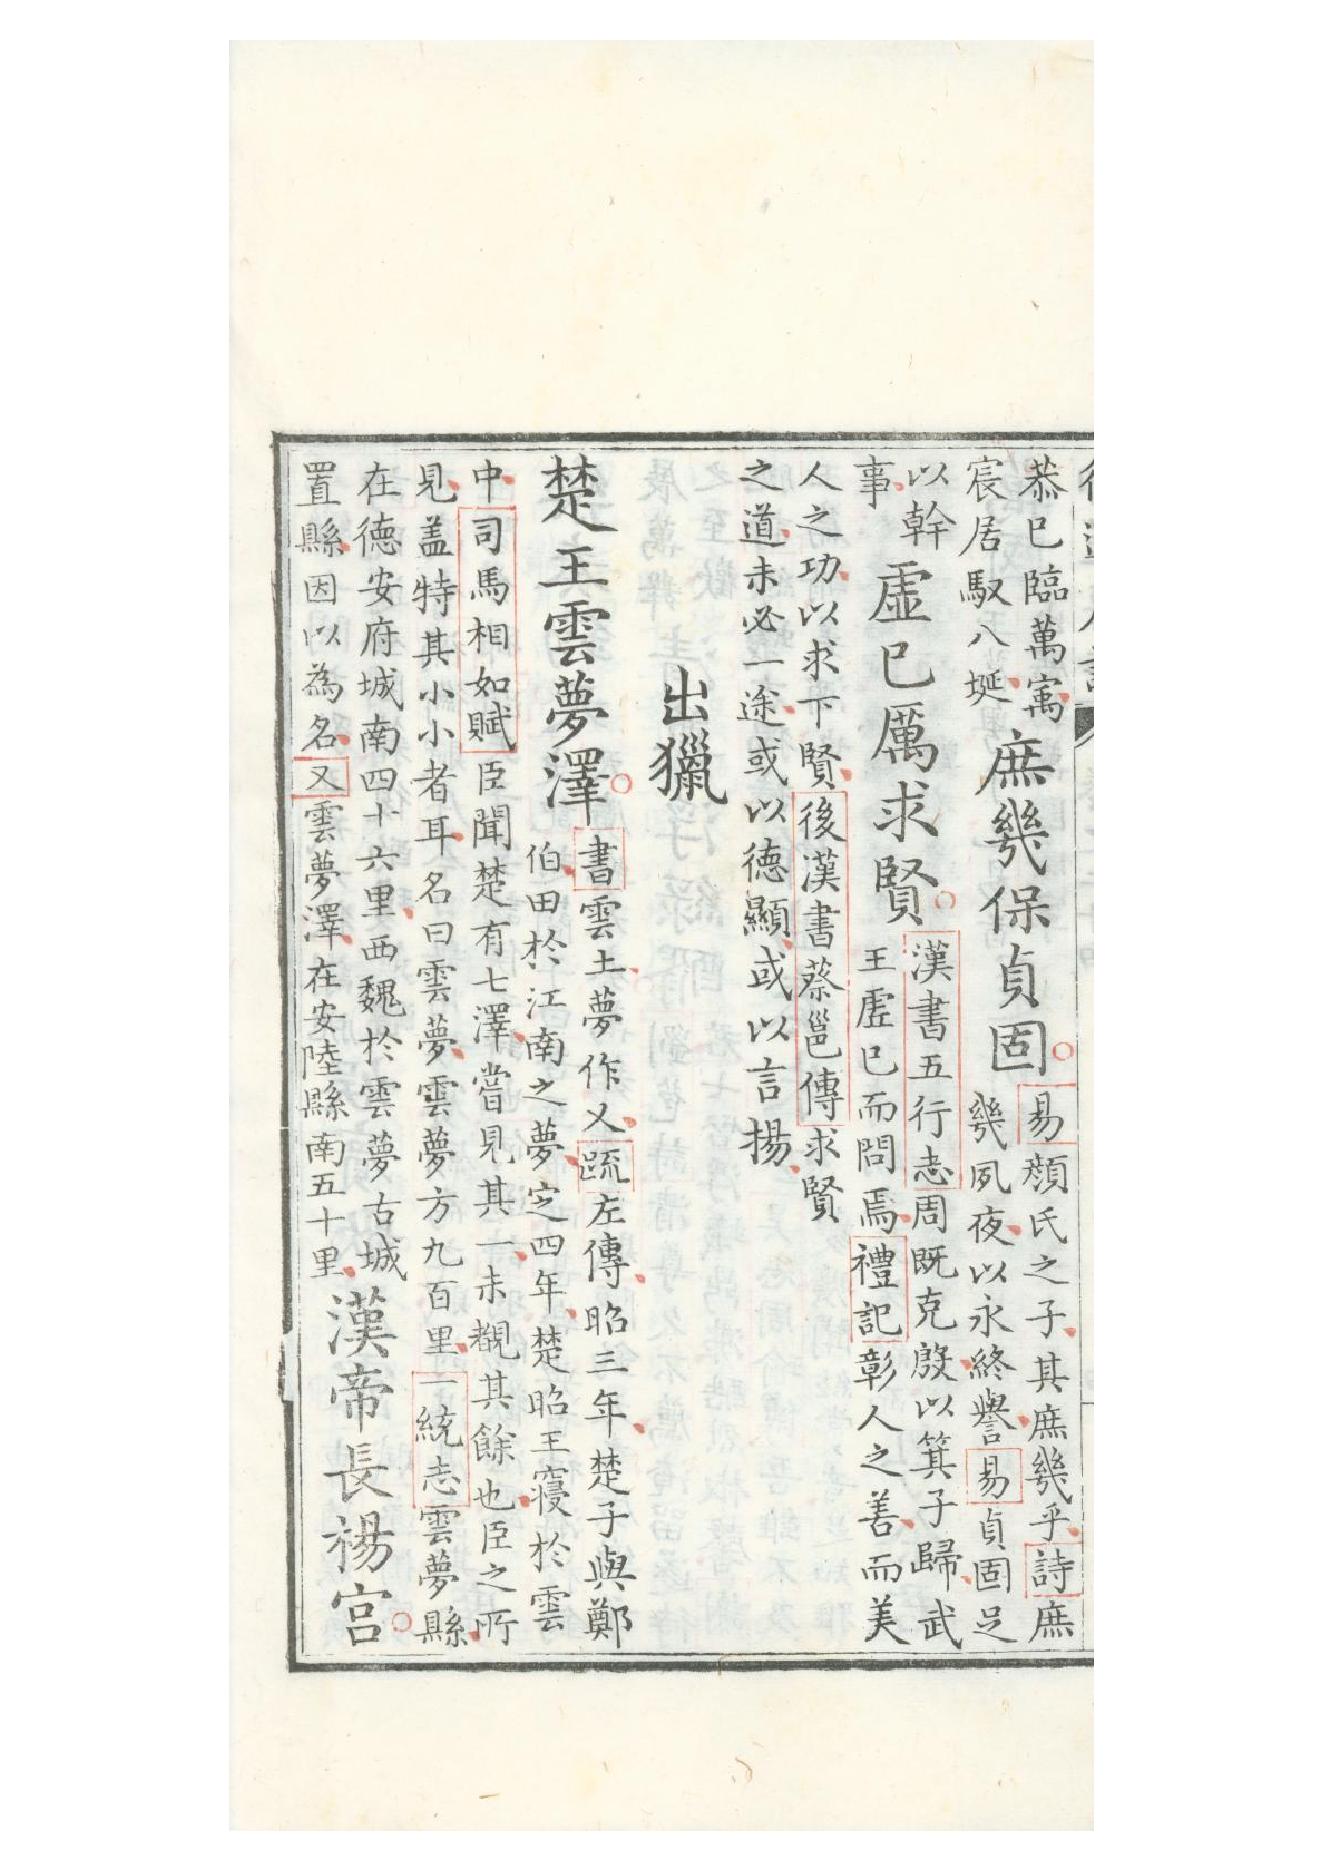 恭已臨萬寓
宸居馭八埏
庶幾保貞固
易顏氏之子其庶幾乎詩庶
幾夙夜以永終譽易貞固足
以幹
事
虛已厲求賢
漢書五行志周既克殷以箕子歸武
王虛已而問焉禮記彰人之善而美
人之功以求下賢後漢書蔡邕傳求賢
之道未必一途或以德顯或以言揚
出獵
楚王雲夢澤
書雲土夢作乂疏左傳昭三年楚子與鄭
伯田於江南之夢定四年楚昭王寢於雲
中司馬相如賦臣聞楚有七澤嘗見其一未覩其餘也臣之所
見盖特其小小者耳名曰雲夢雲夢方九百里一統志雲夢縣
在德安府城南四十六里西魏於雲夢古城
置縣因以為名又雲夢澤在安陸縣南五十里
漢帝長楊宮